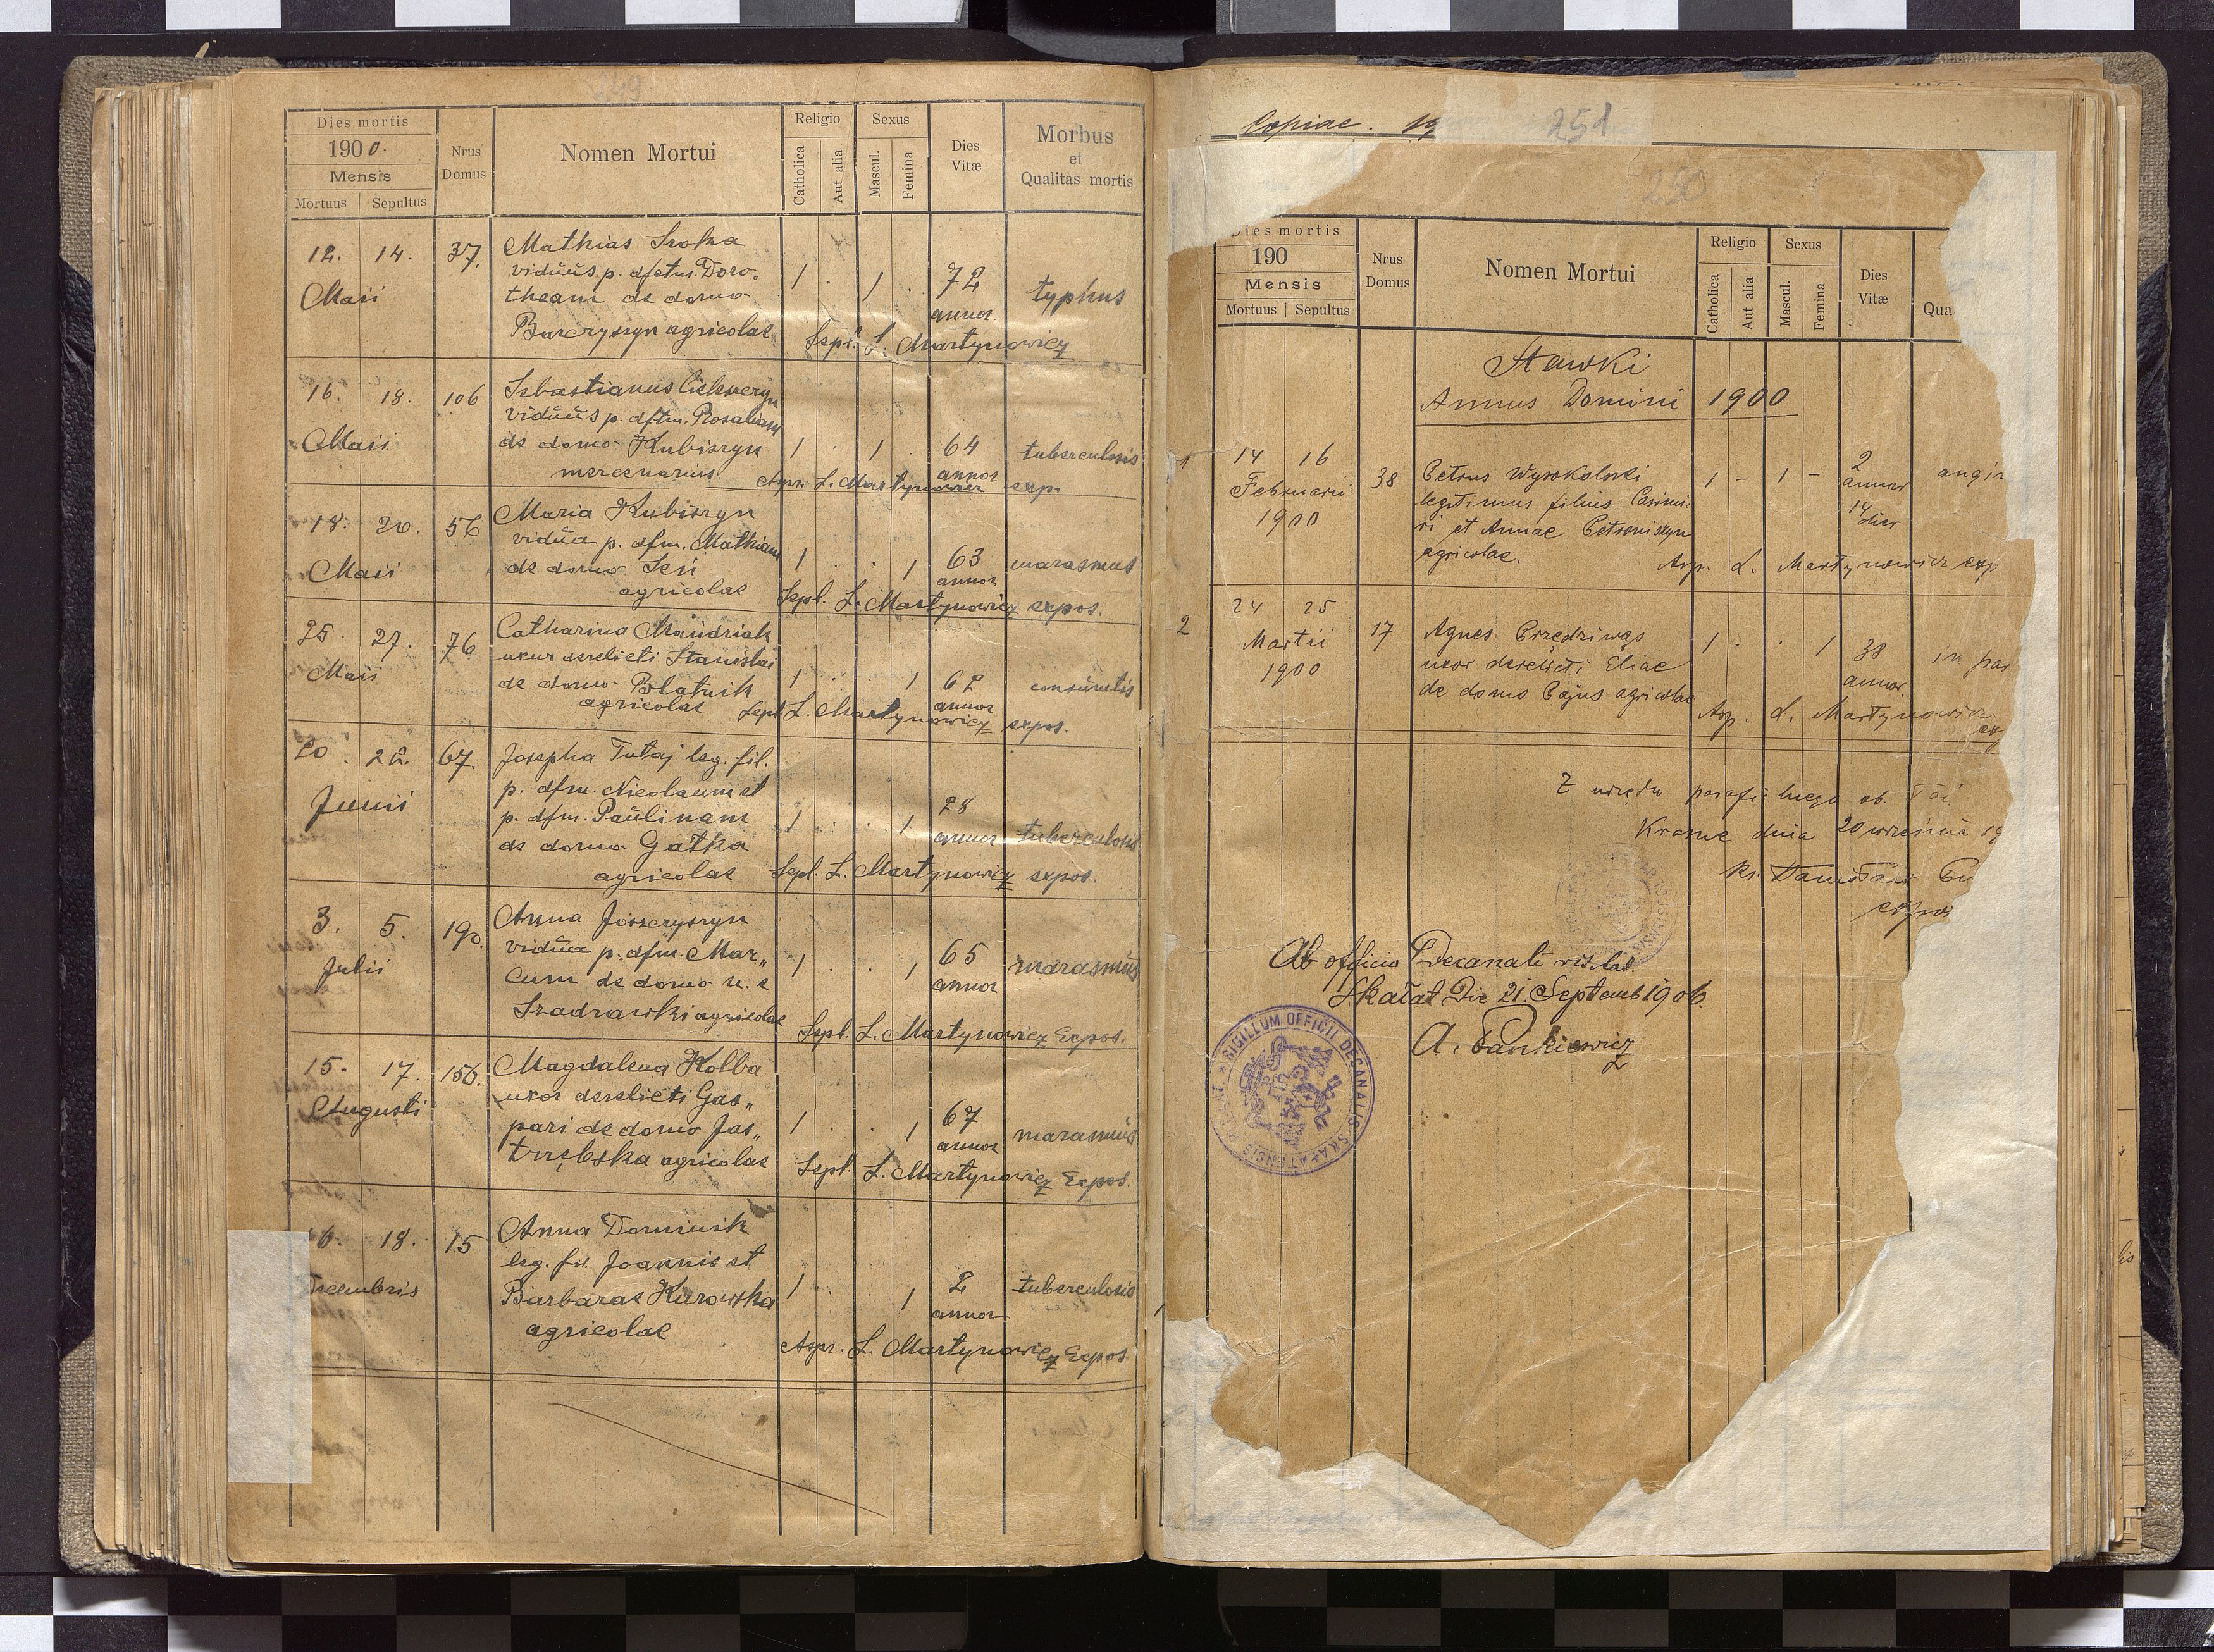 Dies mortis
1900.
Mensis
Mortuus Sepultus
Nrus
Domus
Nomen Mortui
Religio
Catholica
Aut alia
Sexus
Mascul.
Femina
Dies
Vitæ
Morbus
et
Qualitas mortis
12. 14. 37. Mathias Sroka
viduus p. dfctm. Doro-
Maii theam de domo 1 . 1 . 72 typhus
annor.
agricolae Sepl. L. Martynowicz
16. 18. 106 Sebastianus
viduus p. dfctm. Rosaliam
Maii de domo Kubiszyn 1 . 1 . 64 tuberculosis
mercenarius. annor
L. Martynowicz exp.
18. 20. 56 Maria Kubiszyn
vidua p. dfm. Mathiam
Maii de domo 1 . . 1 63 marasmus
agricolae annor
Sepl. L. Martynowicz expos.
25. 27. 76 Catharina Mandriak
uxor derelicti Stanislai
Maii de domo Blatnik 1 . . 1 62
agricolae annor
Sepl. L. Martynowicz expos.
20. 22. 67. Josepha Tutaj leg. fil.
p. dfm. Nicolaum et
Junii p. dfm. Paulinam 1 . . 1 28
de domo Gatka annor tuberculosis
agricolae Sepl. L. Martynowicz expos.
3. 5. 190. Anna
vidua p. dfm. Mar„
Julii cum de domo 1 . . 1 65 marasmus
annor
agricolae
Sepl. L. Martynowicz Expos.
15. 17. 156. Magdalena Kolba
Augusti uxor derelicti Gas„
pari de domo Jas„ 1 . . 1 67 marasmus
trzębska agricolae annor
Sepl. L. Martynowicz Expos.
16. 18. 15 Anna Dominik
leg. fil. Joannis et
Decembris Barbarae Kurowska 1 . . 1 2 tuberculosis
agricolae annor
L. Martynowicz Expos.
Copiae. 19
251
250
Dies mortis
190
Mensis
Mortuus Sepultus
Nrus
Domus
Nomen Mortui
Religio
Catholica
Aut alia
Sexus
Mascul.
Femina
Dies
Vitæ
Qua
Stawki
Annus Domini 1900
1 14 16 38 Petrus Wysokolski 1 - 1 - 2 angin
Februarii legitimus filius Casimi- annor
1900 ri et Annae Petroniszyn 14 dier
agricolae. Asp. L. Martynowicz exp
2 24 25 17 Agnes Przędziwąs
Martii uxor derelicti Eliae 1 . . 1 38 in par
1900 de domo Pajus agricolae annor.
Asp. L. Martynowicz
ex
Z urzędu parafialnego ob. łac
Krasne dnia 20 września 19
ks. Stanisław
expos
Ab officio Decanali
Skałat Die 21. Septemb 1906
A. Pankiewicz
SIGILLUM OFFICII DECANALIS SKAŁATENSIS R. L. ENT.